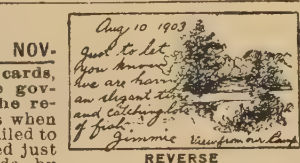 NOV-
cards,
gov-
he re-
s when
iled to
ed just
by
Aug 10 1903
Just to let
you know
we are having
an elegant time
and catching lots
of fish.
Jimmie View from our Camp
REVERSE